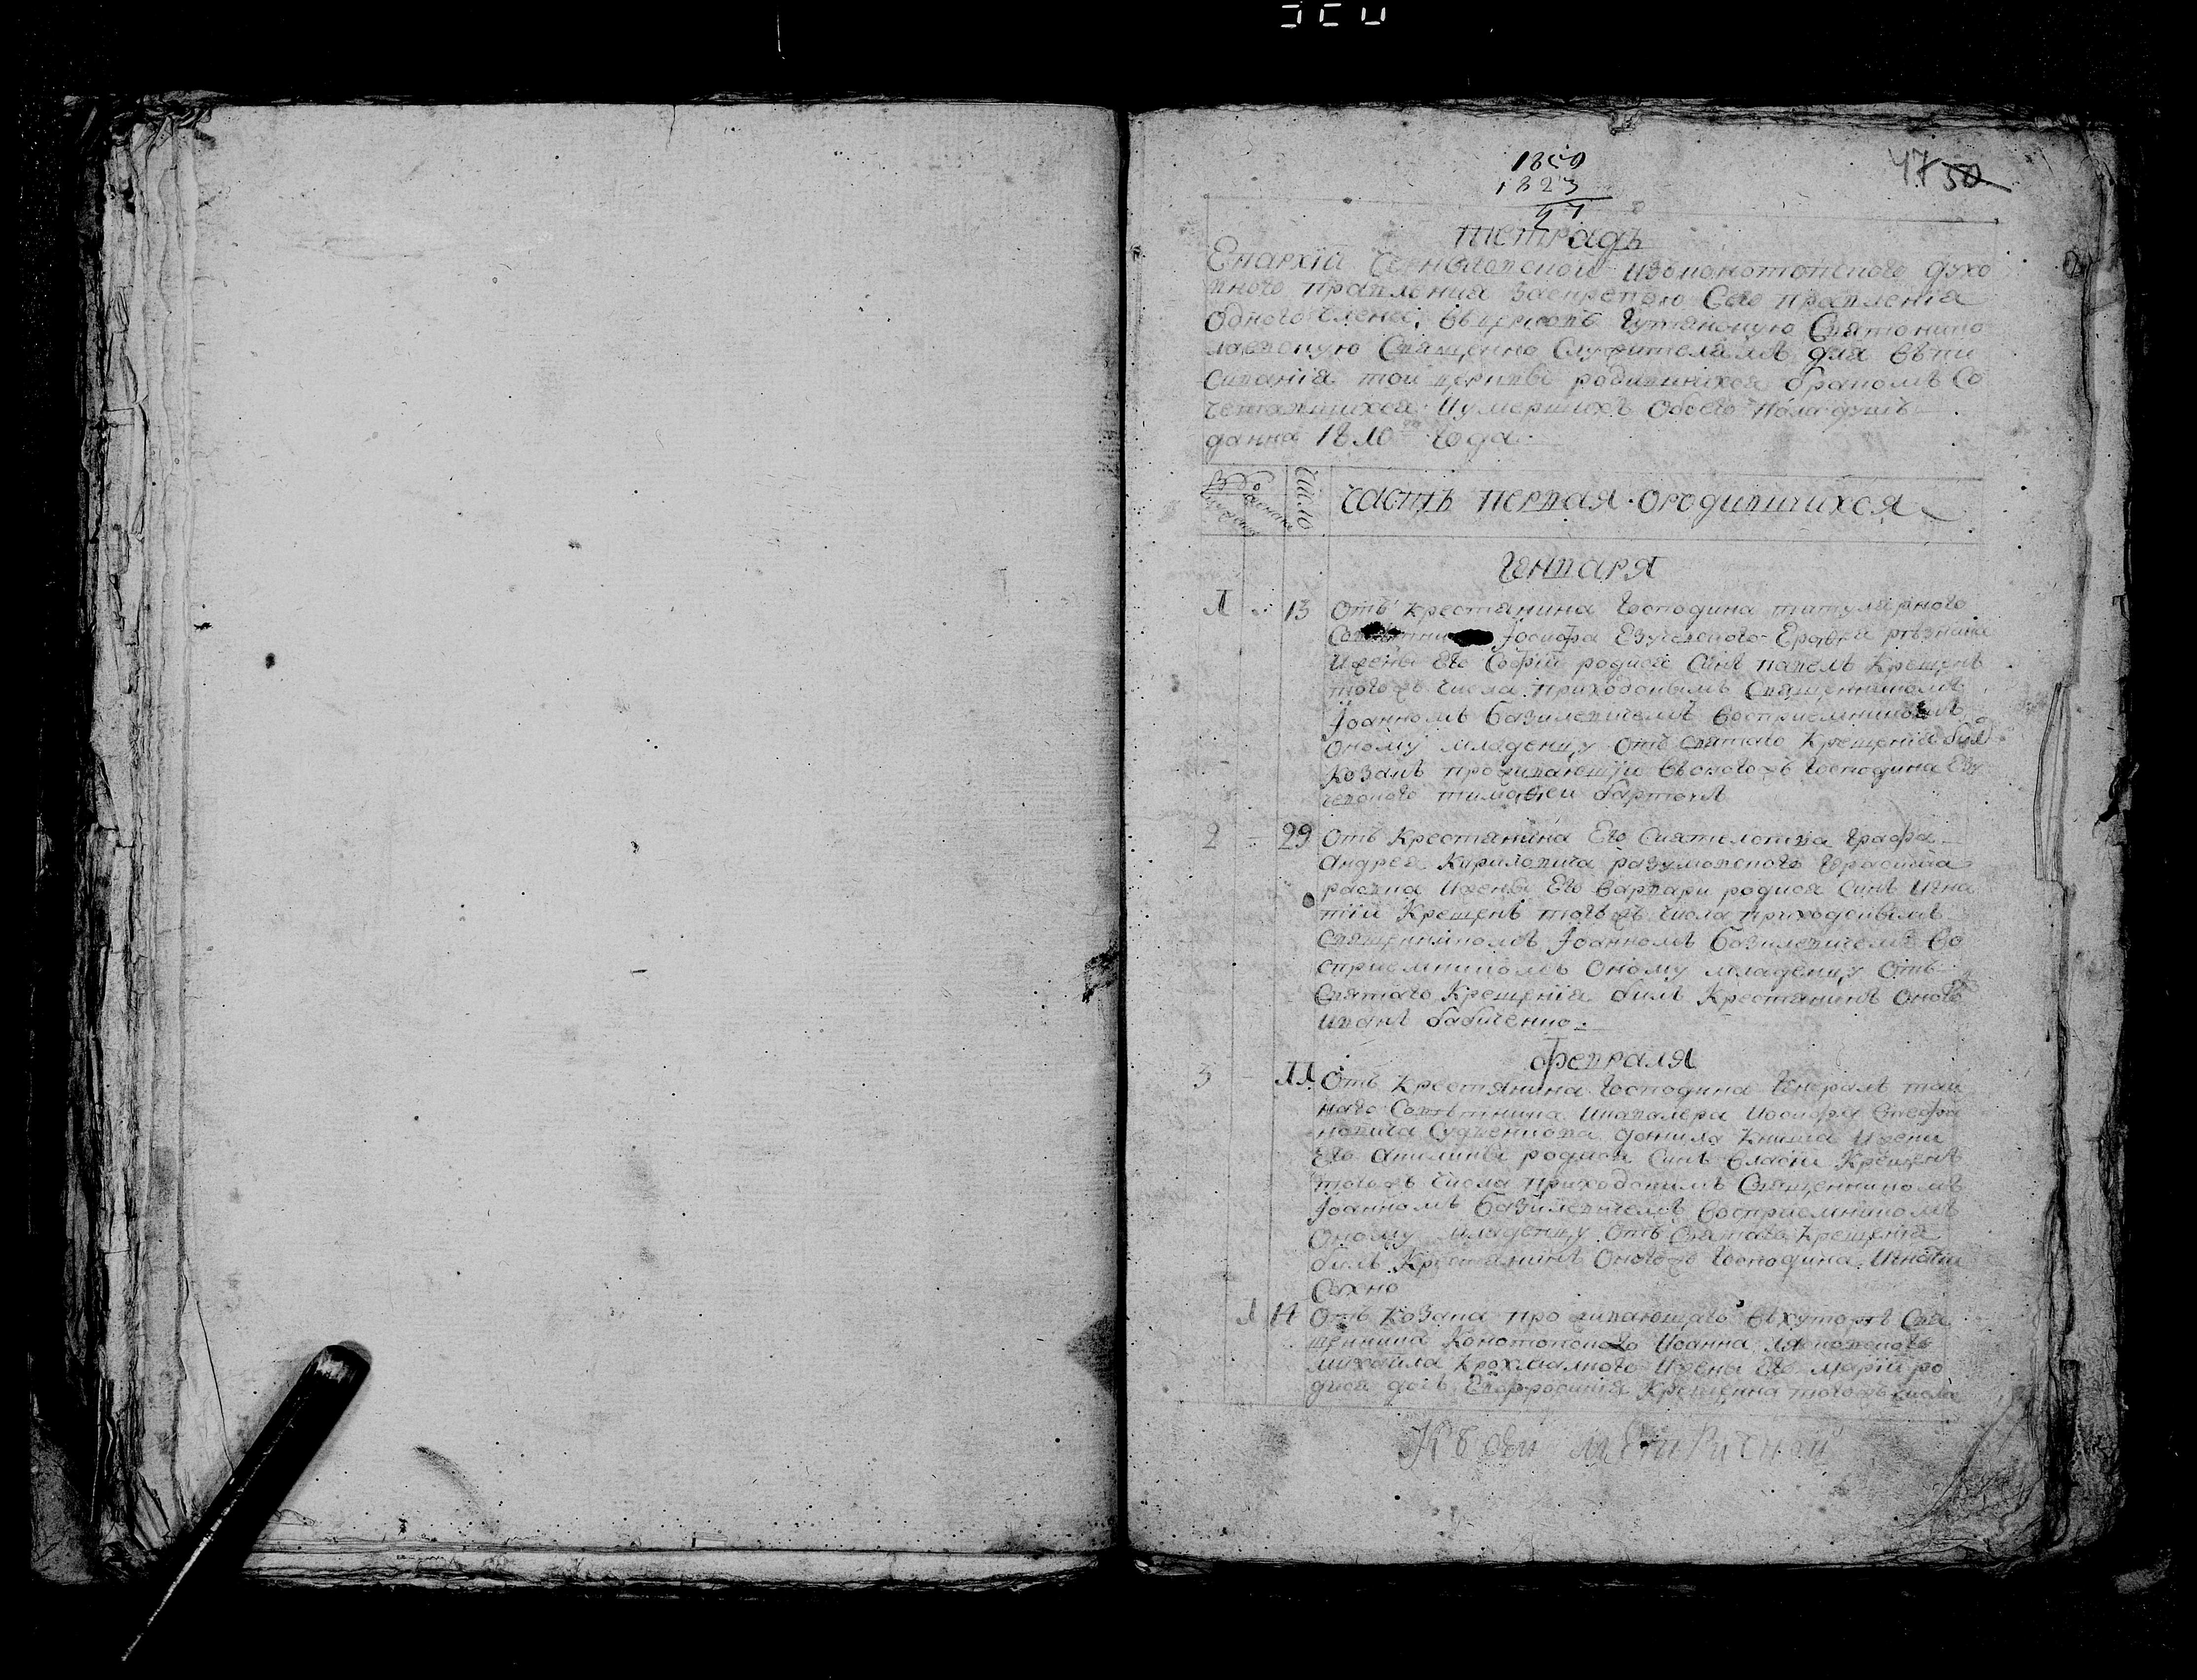 1850
1823
47 50
тетрадь
Епархіи Черниговской изъ конотопского духо
вного правления заскрепою Сего правления
Одного члена, въ церковь Гутянскую Свято нико
лаевскую Священно Служителямъ для въпи
сиванія той церкви родившихся бракомъ Со
четавшихся Иумершихъ Обоего пола душъ
данна 1810 года
Число
Часть первая о родившихся
Генваря
1 13 Отъ крестянина Господина титулярного
Іосифа Езучевского
Ижены Его Софіи родися Синъ павелъ Крещенъ
того жъ числа приходскымъ Священникомъ
Іоанномъ Базилевичемъ восприемникомъ
Оному младенцу Отъ святаго Крещенія былъ
Козакъ проживающій въ оного жъ Господина Езу
чевского тимофеи
2 29 Отъ Крестянина Его Сиятелства Графа
Андрея Кириловича разумовского
Ижены Его Варвари родися Синъ Игна
тіи Крещенъ того жъ числа приходскымъ
священникомъ Іоанномъ Базилевичемъ Во
сприемникомъ Оному младенцу Отъ
Святаго Крещенія билъ Крестянинъ Оного
Иванъ бабиченко
февраля
3 11 Отъ Крестянина Господина Генералъ таи
наго Совѣтника Икавалера Иосифа Стефа
новича Судъенкова данила Книша Ижени
Его Акилины родися Синъ Власіи Крещенъ
того жъ числа приходскимъ Священникомъ
Іоанномъ Базилевичемъ восприемникомъ
Оному младенцу Отъ Святаго Крещенія
билъ Крестянинъ Оного жъ Господина Игнатіи
Сахно
1 14 Отъ Козака проживающаго въхуторѣ Свя
щенника Конотопского Иоанна
михаила Крохмалного Ижены Его Маріи ро
дися дочь Евфросинія Крещенна того жъ числа